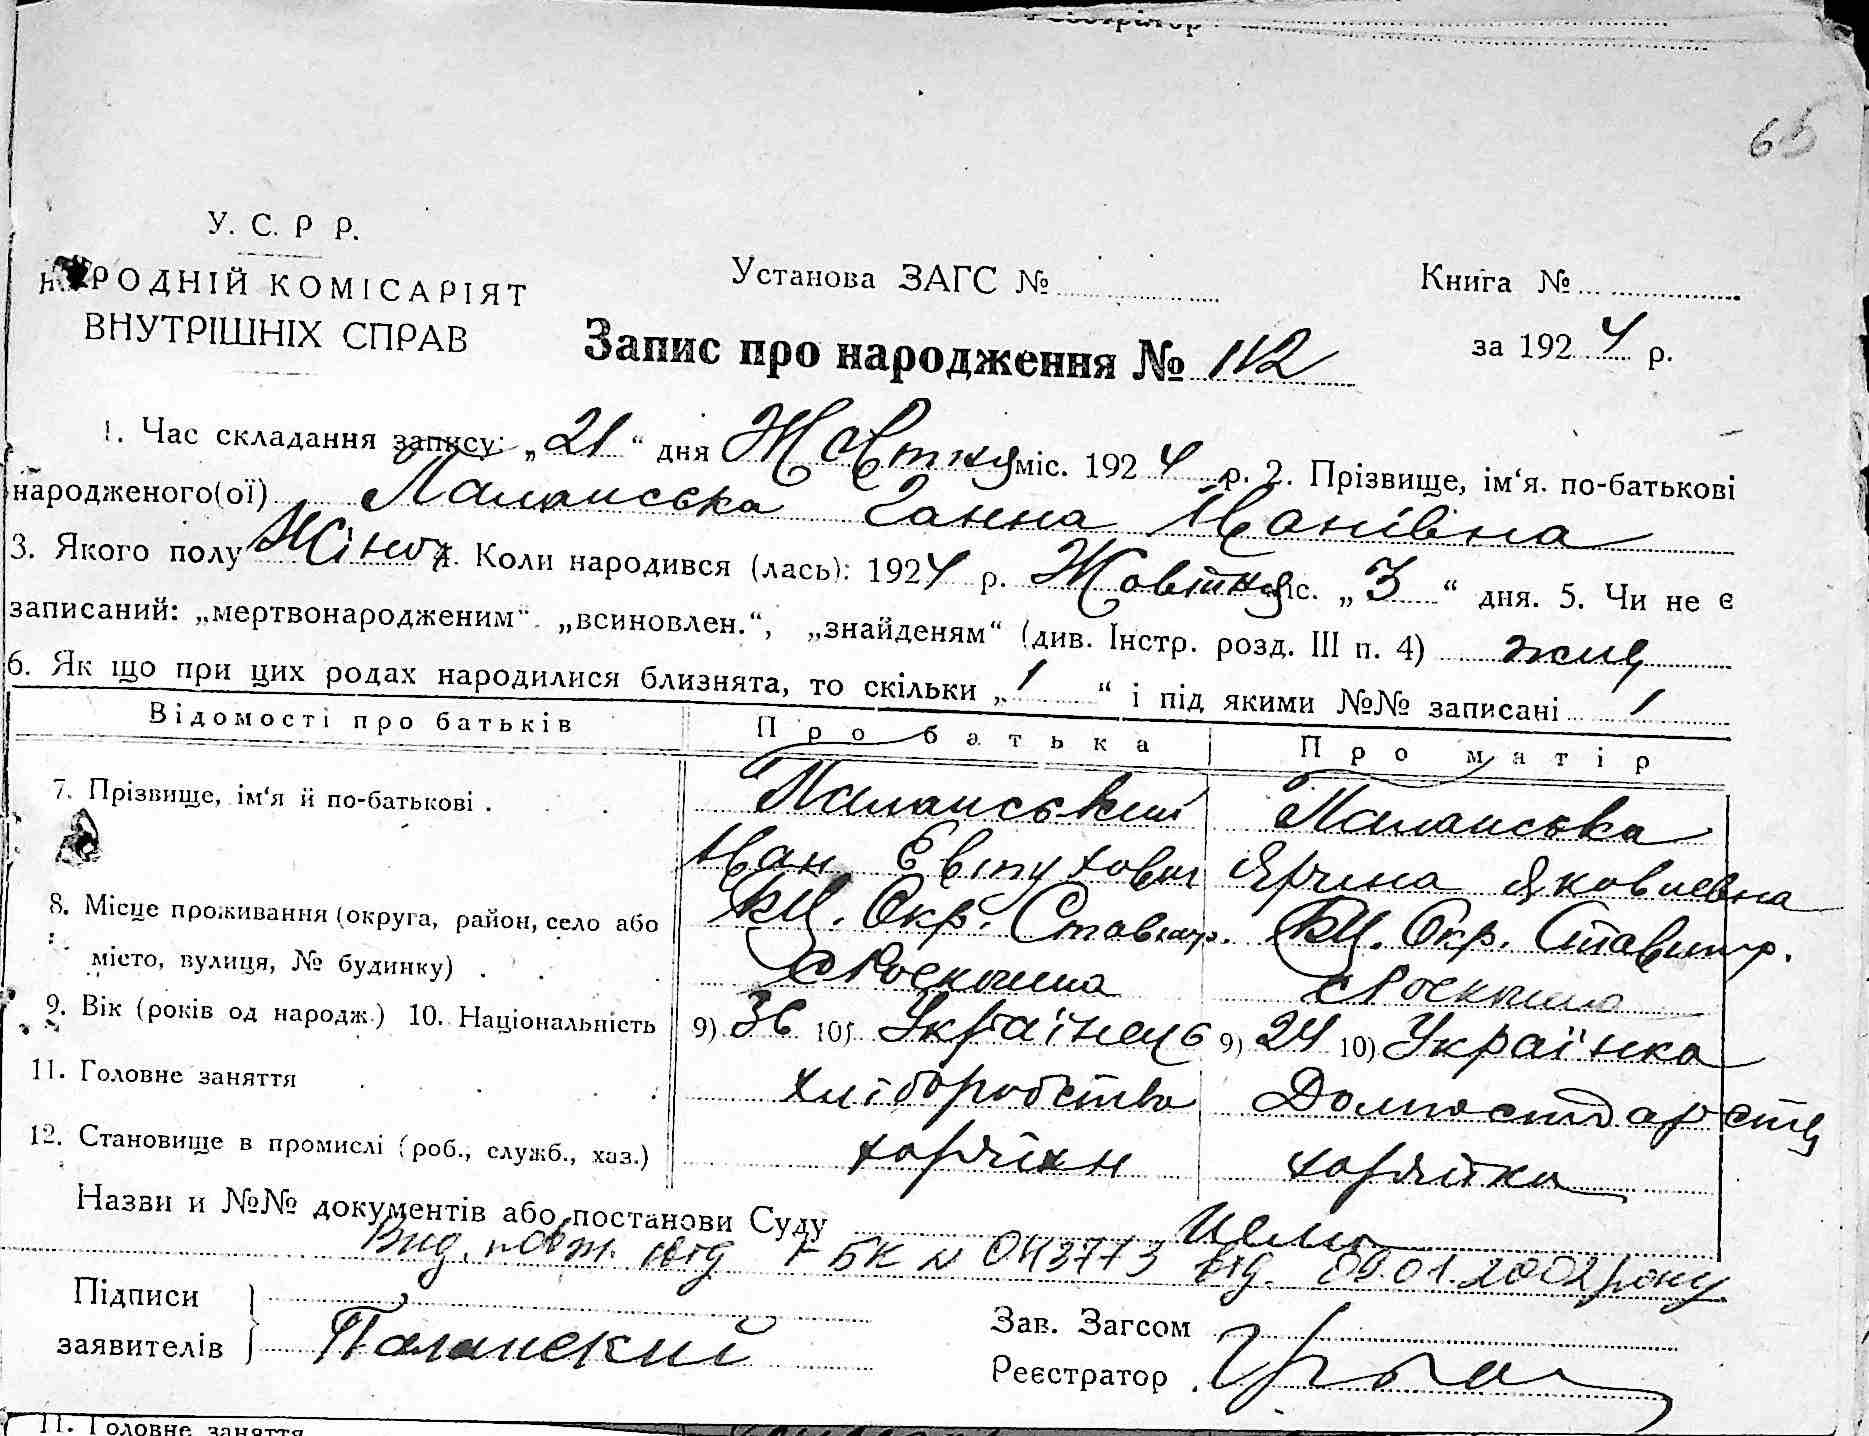 Реєстратор
65
У. С. Р Р.
НАРОДНІЙ КОМІСАРІЯТ
ВНУТРІШНІХ СПРАВ
Установа ЗАГС №
Книга №
Запис про народження № 112
за 1924 р.
1. Час складання запису: „21“ дня Жовтня міс. 1924 р. 2. Прізвище, ім‘я. по-батькові
народженого(ої) Паланська Ганна Іванівна
3. Якого полу Жіноч. 4. Коли народився (лась): 1924 р. Жовтня міс. „3“ дня. 5. Чи не є
записаний: „мертвонародженим“, „всиновлен.“, „знайденям“ (див. Інстр. розд. III п. 4)
6. Як що при цих родах народилися близнята, то скільки „1“ і під якими №№ записані 1
Відомості про батьків Про батька Про матір
7. Прізвище, ім‘я й по-батькові . Паланський Паланська
Іван Евтухович Ярина Яковлевна
8. Місце проживання (округа, район, село або БЦ. Окр. Ставищ. БЦ. Окр. Ставищ.
місто, вулиця, № будинку) . с Роскошна с Роскошна
9. Вік (років од народж.) 10. Національність 9) 36 10) Українець 9) 24 10) Українка
11. Головне заняття хліборобство
12. Становище в промислі (роб., служб., хаз.) хазяїн хазяйка
Назви и №№ документів або постанови Суду
Вид. повт. свід І-БК № 043773 від. 09.01.2002 року
Підписи
заявителів Паланский
Зав. Загсом
Реєстратор
11. Головне заняття